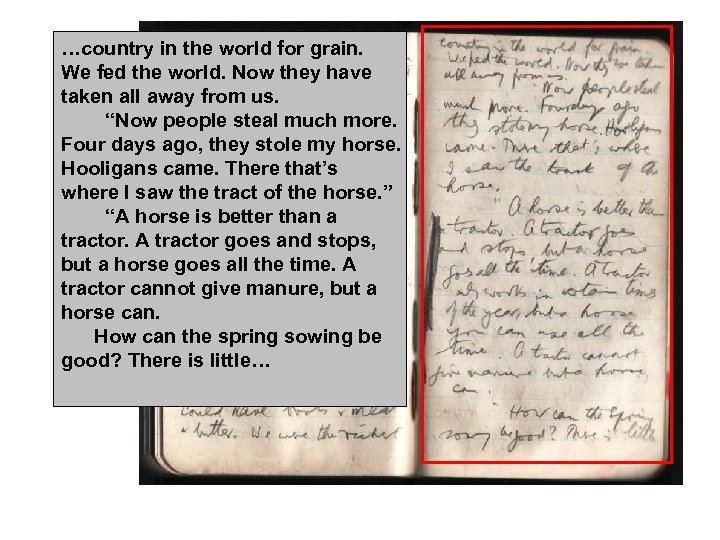 …country in the world for grain.
We fed the world. Now they have
taken all away from us.
“Now people steal much more.
Four days ago, they stole my horse.
Hooligans came. There that’s
where I saw the tract of the horse.”
“A horse is better than a
tractor. A tractor goes and stops,
but a horse goes all the time. A
tractor cannot give manure, but a
horse can.
How can the spring sowing be
good? There is little…
could have boots & meat
& butter. We were the richest
country in the world for grain.
We fed the world. Now they have taken
all away from us.
"Now people steal
much more. Four days ago
they stole my horse. Hooligans
came. There that's where
I saw the track of the
horse.
"A horse is better than
a tractor. A tractor goes
and stops, but a horse
goes all the time. A tractor
only works in certain times
of the year, but a horse
you can use all the
time. A tractor cannot
give manure but a horse
can.
"How can the Spring
sowing be good? There is little